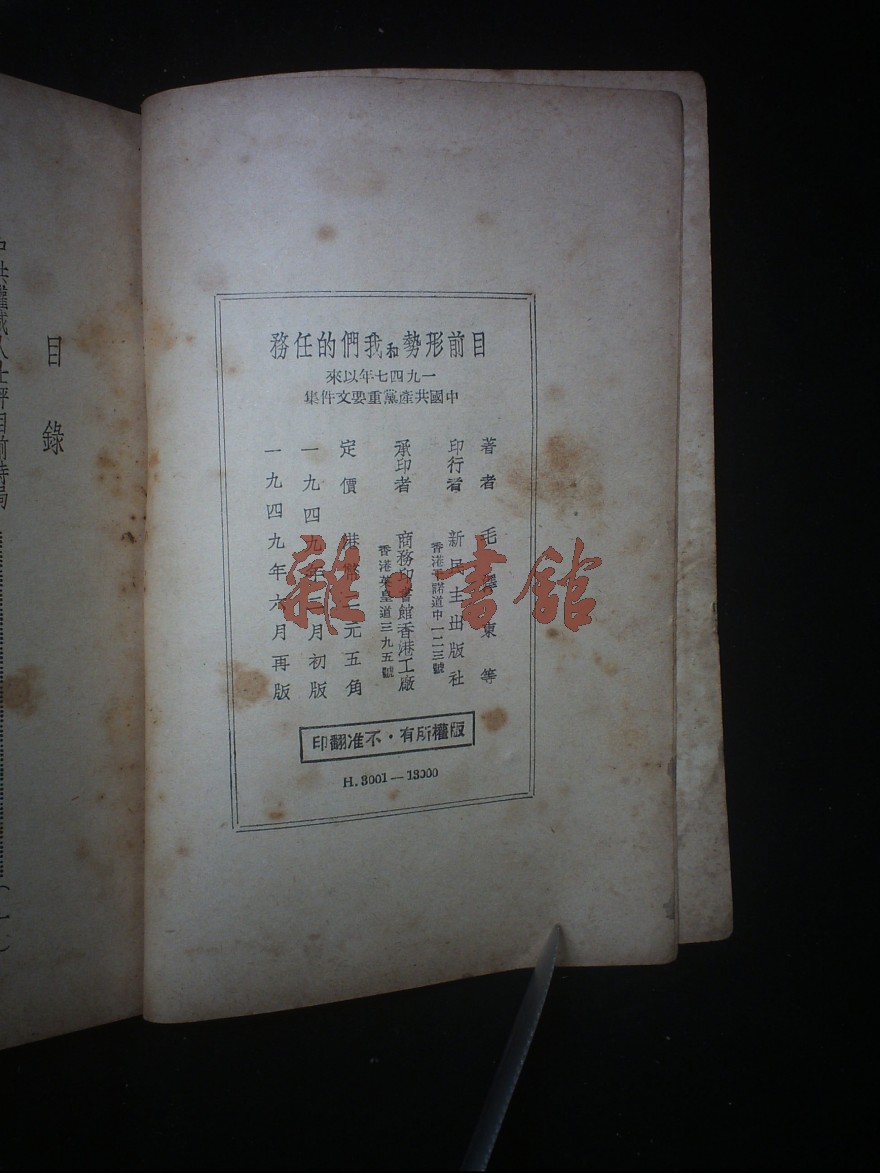 目前形勢和我們的任務
一九四七年以來
中國共產黨重要文件集
著者 毛澤東等
印行者 新民主出版社
香港干諾道中一二三號
承印者 商務印書館香港工廠
香港英皇道三九五號
定價 港幣元五角
一九四九年月初版
一九四九年六月再版
版權所有・不准翻印
H. 3001—13000
目錄
中共權威人士評目前時局…………（一）
雜・書館